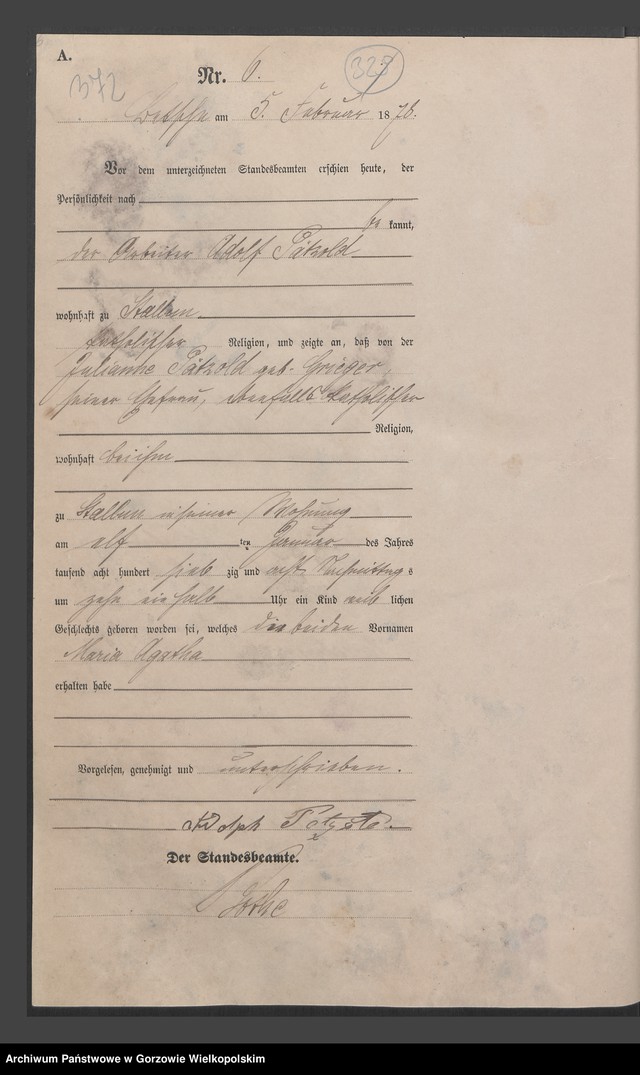 A.
372
Nr. 6.
323
Betsche am 5. Februar 1878.
Vor dem unterzeichneten Standesbeamten erschien heute, der
Persönlichkeit nach
be kannt,
der Arbeiter Adolf Pätzold
wohnhaft zu Stallun
katholischer Religion, und zeigte an, daß von der
Julianne Pätzold geb. Grieger,
seiner Ehefrau, ebenfalls katholischer
Religion,
wohnhaft bei ihm
zu Stallun in seiner Wohnung
am elf ten Januar des Jahres
tausend acht hundert sieb zig und acht Nachmittag s
um zehn ein halb Uhr ein Kind weib lichen
Geschlechts geboren worden sei, welches die beiden Vornamen
Maria Agatha
erhalten habe
Vorgelesen, genehmigt und unterschrieben.
Adolph
Der Standesbeamte.
Archiwum Państwowe w Gorzowie Wielkopolskim